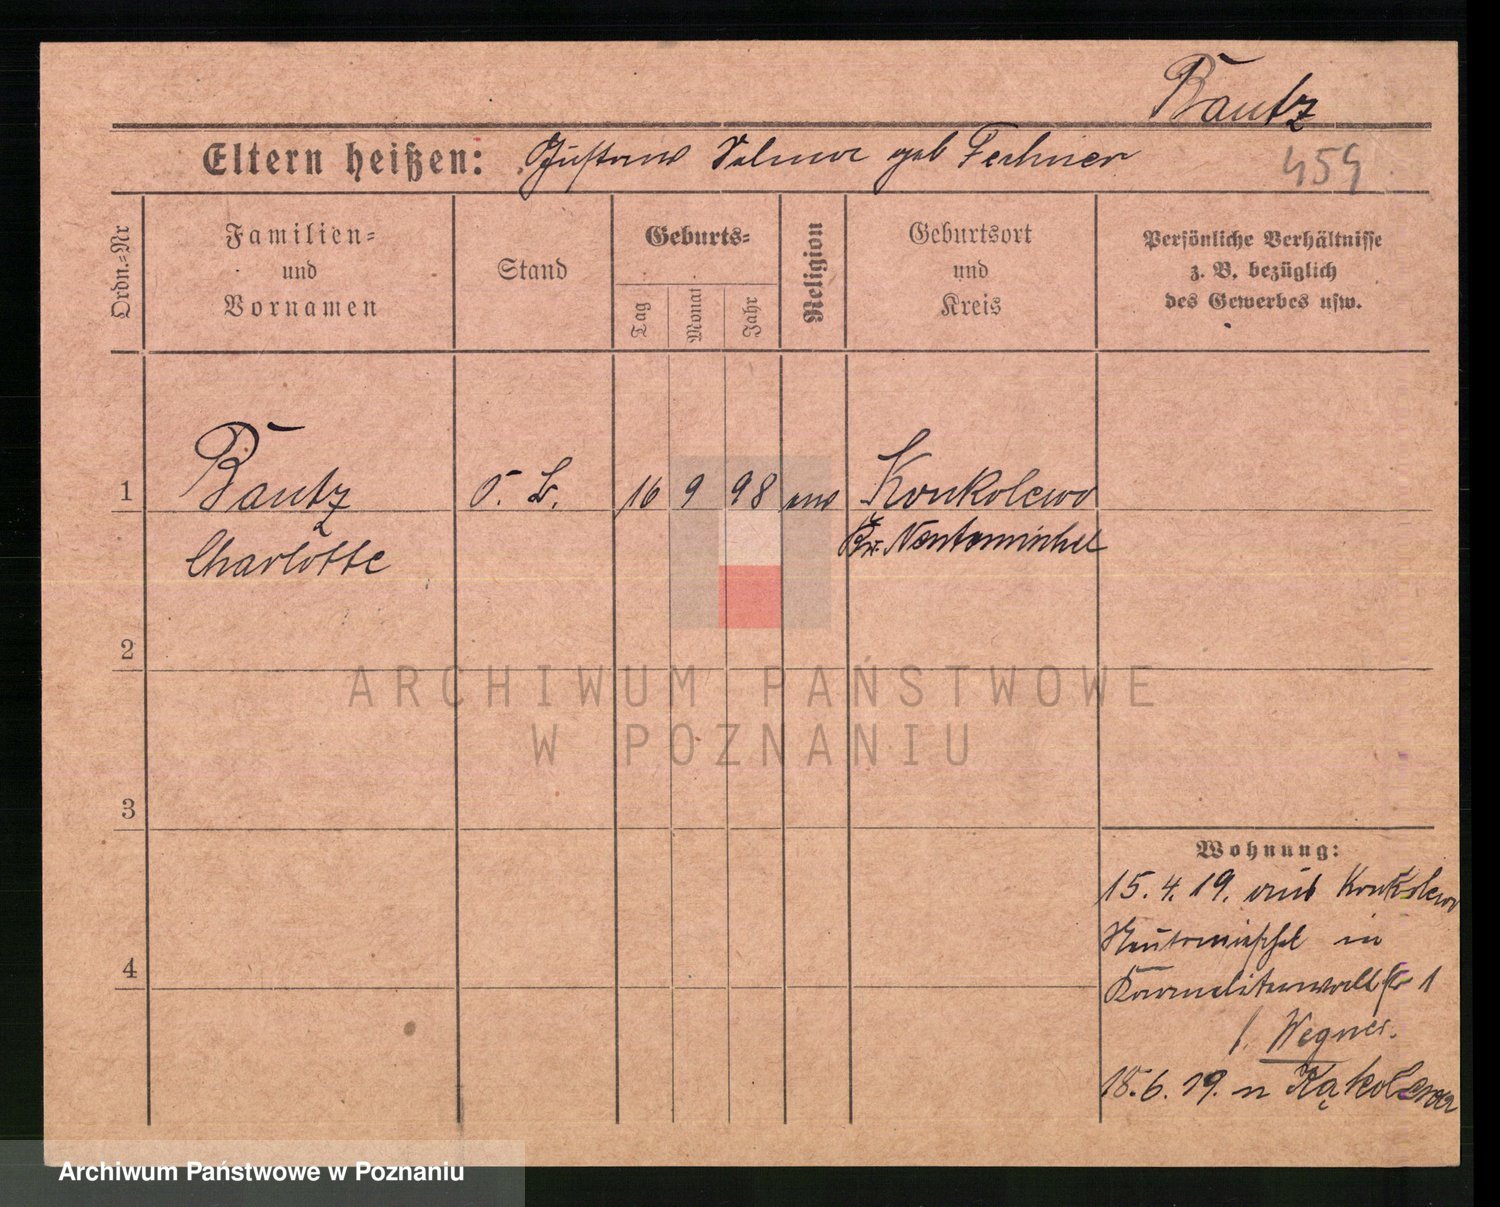 Bautz
Eltern heißen: Gustav Selma geb Fechner
459
Ordn.-Nr
Familien-
und
Vornamen
Stand
Geburts-
Tag
Monat
Jahr
Religion
Geburtsort
und
Kreis
Persönliche Verhältnisse
z. B. bezüglich
des Gewerbes usw.
1 Bautz 16 9 98 Konkolewo
Charlotte Kr. Neutomischel
2
ARCHIWUM PAŃSTWOWE
W POZNANIU
3
Wohnung:
15.4.19. aus Konkolewo
Neutomischel in
4
Karmelitenwallstr 1
b. Wegner.
18.6.19. n Kąkolewa
Archiwum Państwowe w Poznaniu